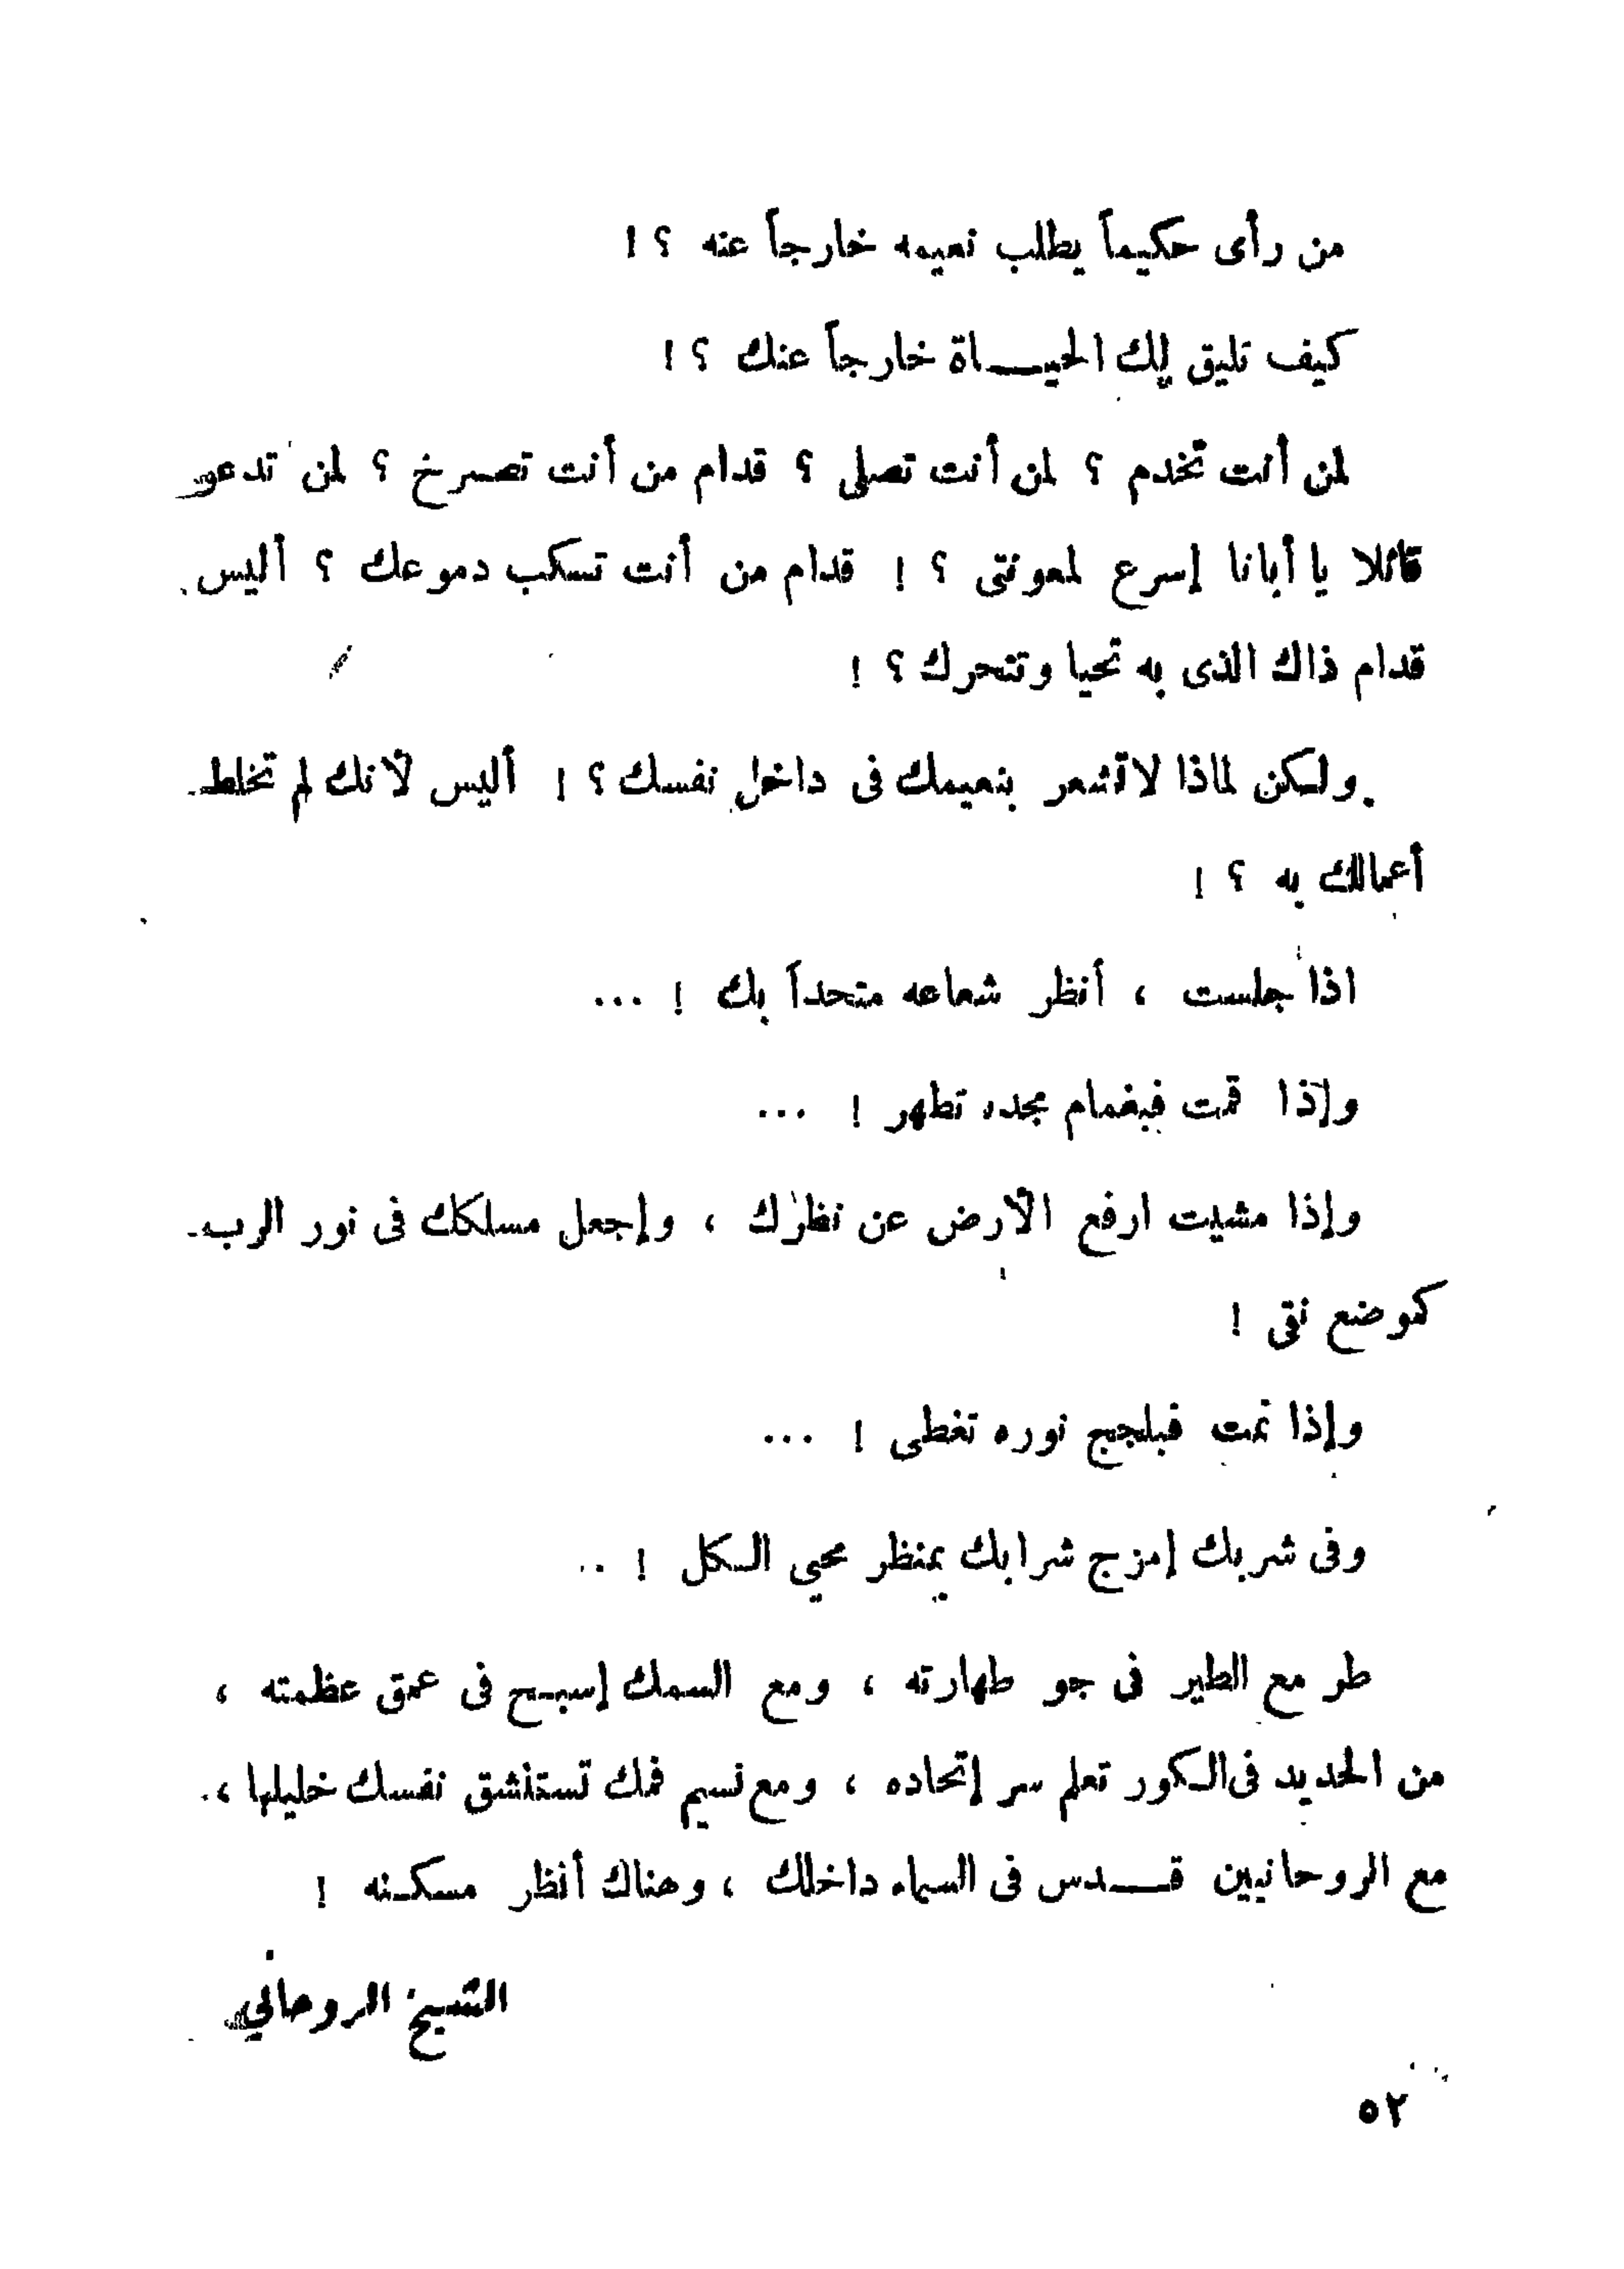 من رأى حكيماً يطلب نعيمه خارجاً عنه ؟ !
كيف تليق بك الحيـــاة خارجاً عنك ؟ !
لمن أنت تخدم ؟ لمن أنت تصلى ؟ قدام من أنت تصرخ ؟ لمن تدعو
قائلا يا أبانا إسرع لمعونتى ؟ ! قدام من أنت تسكب دموعك ؟ أليس
قدام ذاك الذى به تحيا وتتحرك ؟ !
ولكن لماذا لا تشعر بنعيمك فى داخل نفسك ؟ ! أليس لأنك لم تخلط
أعمالك به ؟ !
اذا جلست ، أنظر شعاعه متحداً بك ! ...
وإذا قمت فبغمام مجده تطهر ! ...
وإذا مشيت ارفع الأرض عن نظرك ، وإجعل مسلكك فى نور الرب
كموضع نقى !
وإذا نمت فبلجج نوره تغطى ! ...
وفى شربك إمزج شرابك بمنظر محيي الكل ! ..
طر مع الطير فى جو طهارته ، ومع السمك إسبح فى عمق عظمته ،
من الحديد فى الكور تعلم سر إتحاده ، ومع نسيم فمك تستنشق نفسك خليلها ،
مع الروحانيين قـــدس فى السماء داخلك ، وهناك أنظر مسكنه !
الشيخ الروحاني
٥٢